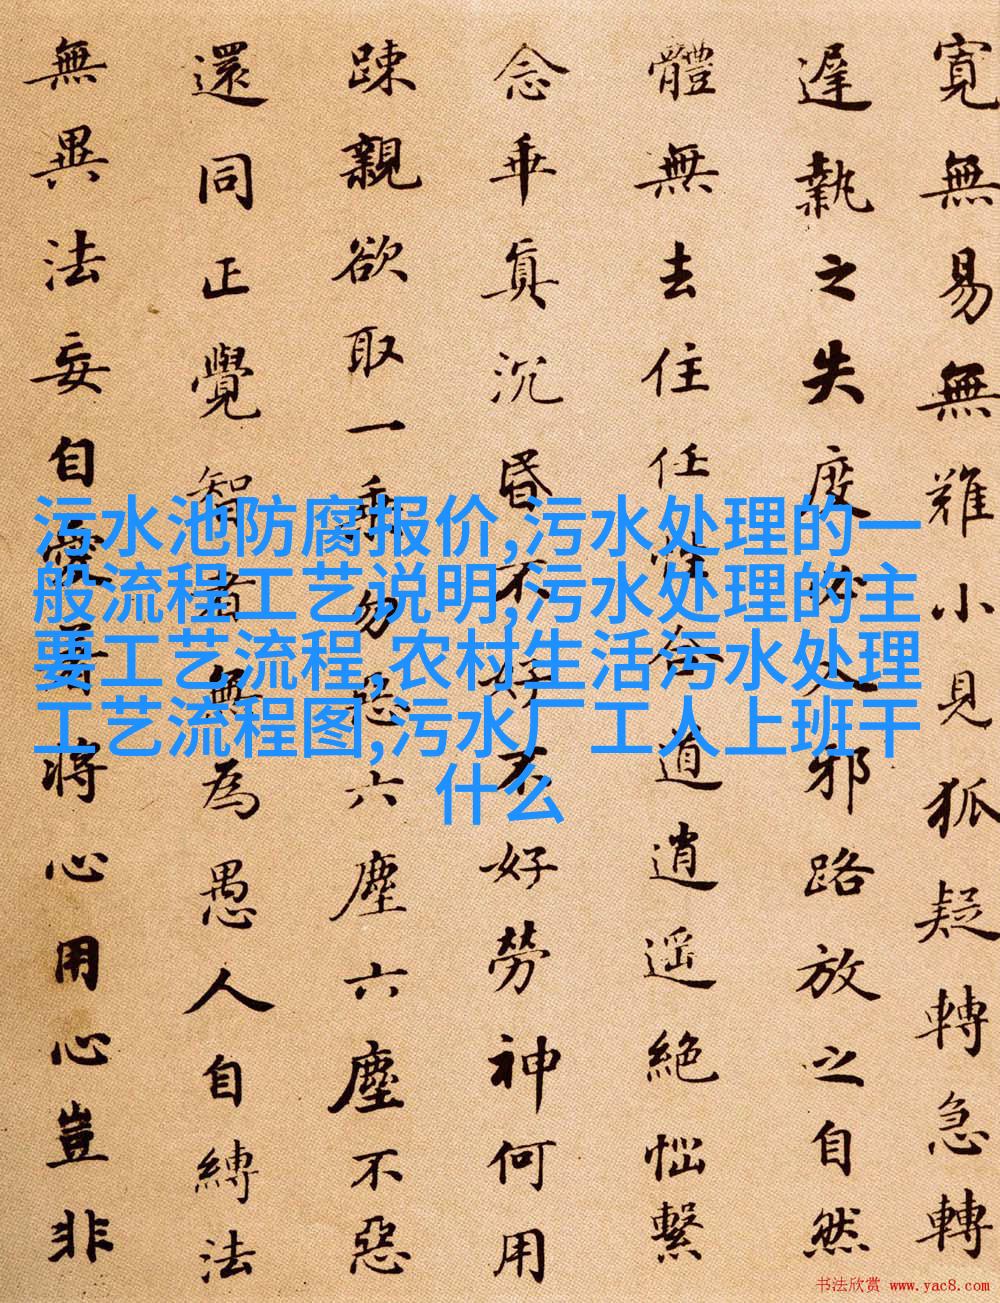 寬無易無難小見狐疑轉急轉
遲執之失度必入邪路放之自然
體無去住任性合道逍遥絶惱繫
念乖真沉昏不好不好勞神何用
踈親欲取一乘勿惡六塵六塵不惡
還同正覺智者無為愚人自縛法
無異法妄自愛著將心用心豈非
污水池防腐报价,污水处理的一
般流程工艺说明,污水处理的主
要工艺流程,农村生活污水处理
工艺流程图,污水厂工人上班干
什么
书法欣赏 www.yac8.com